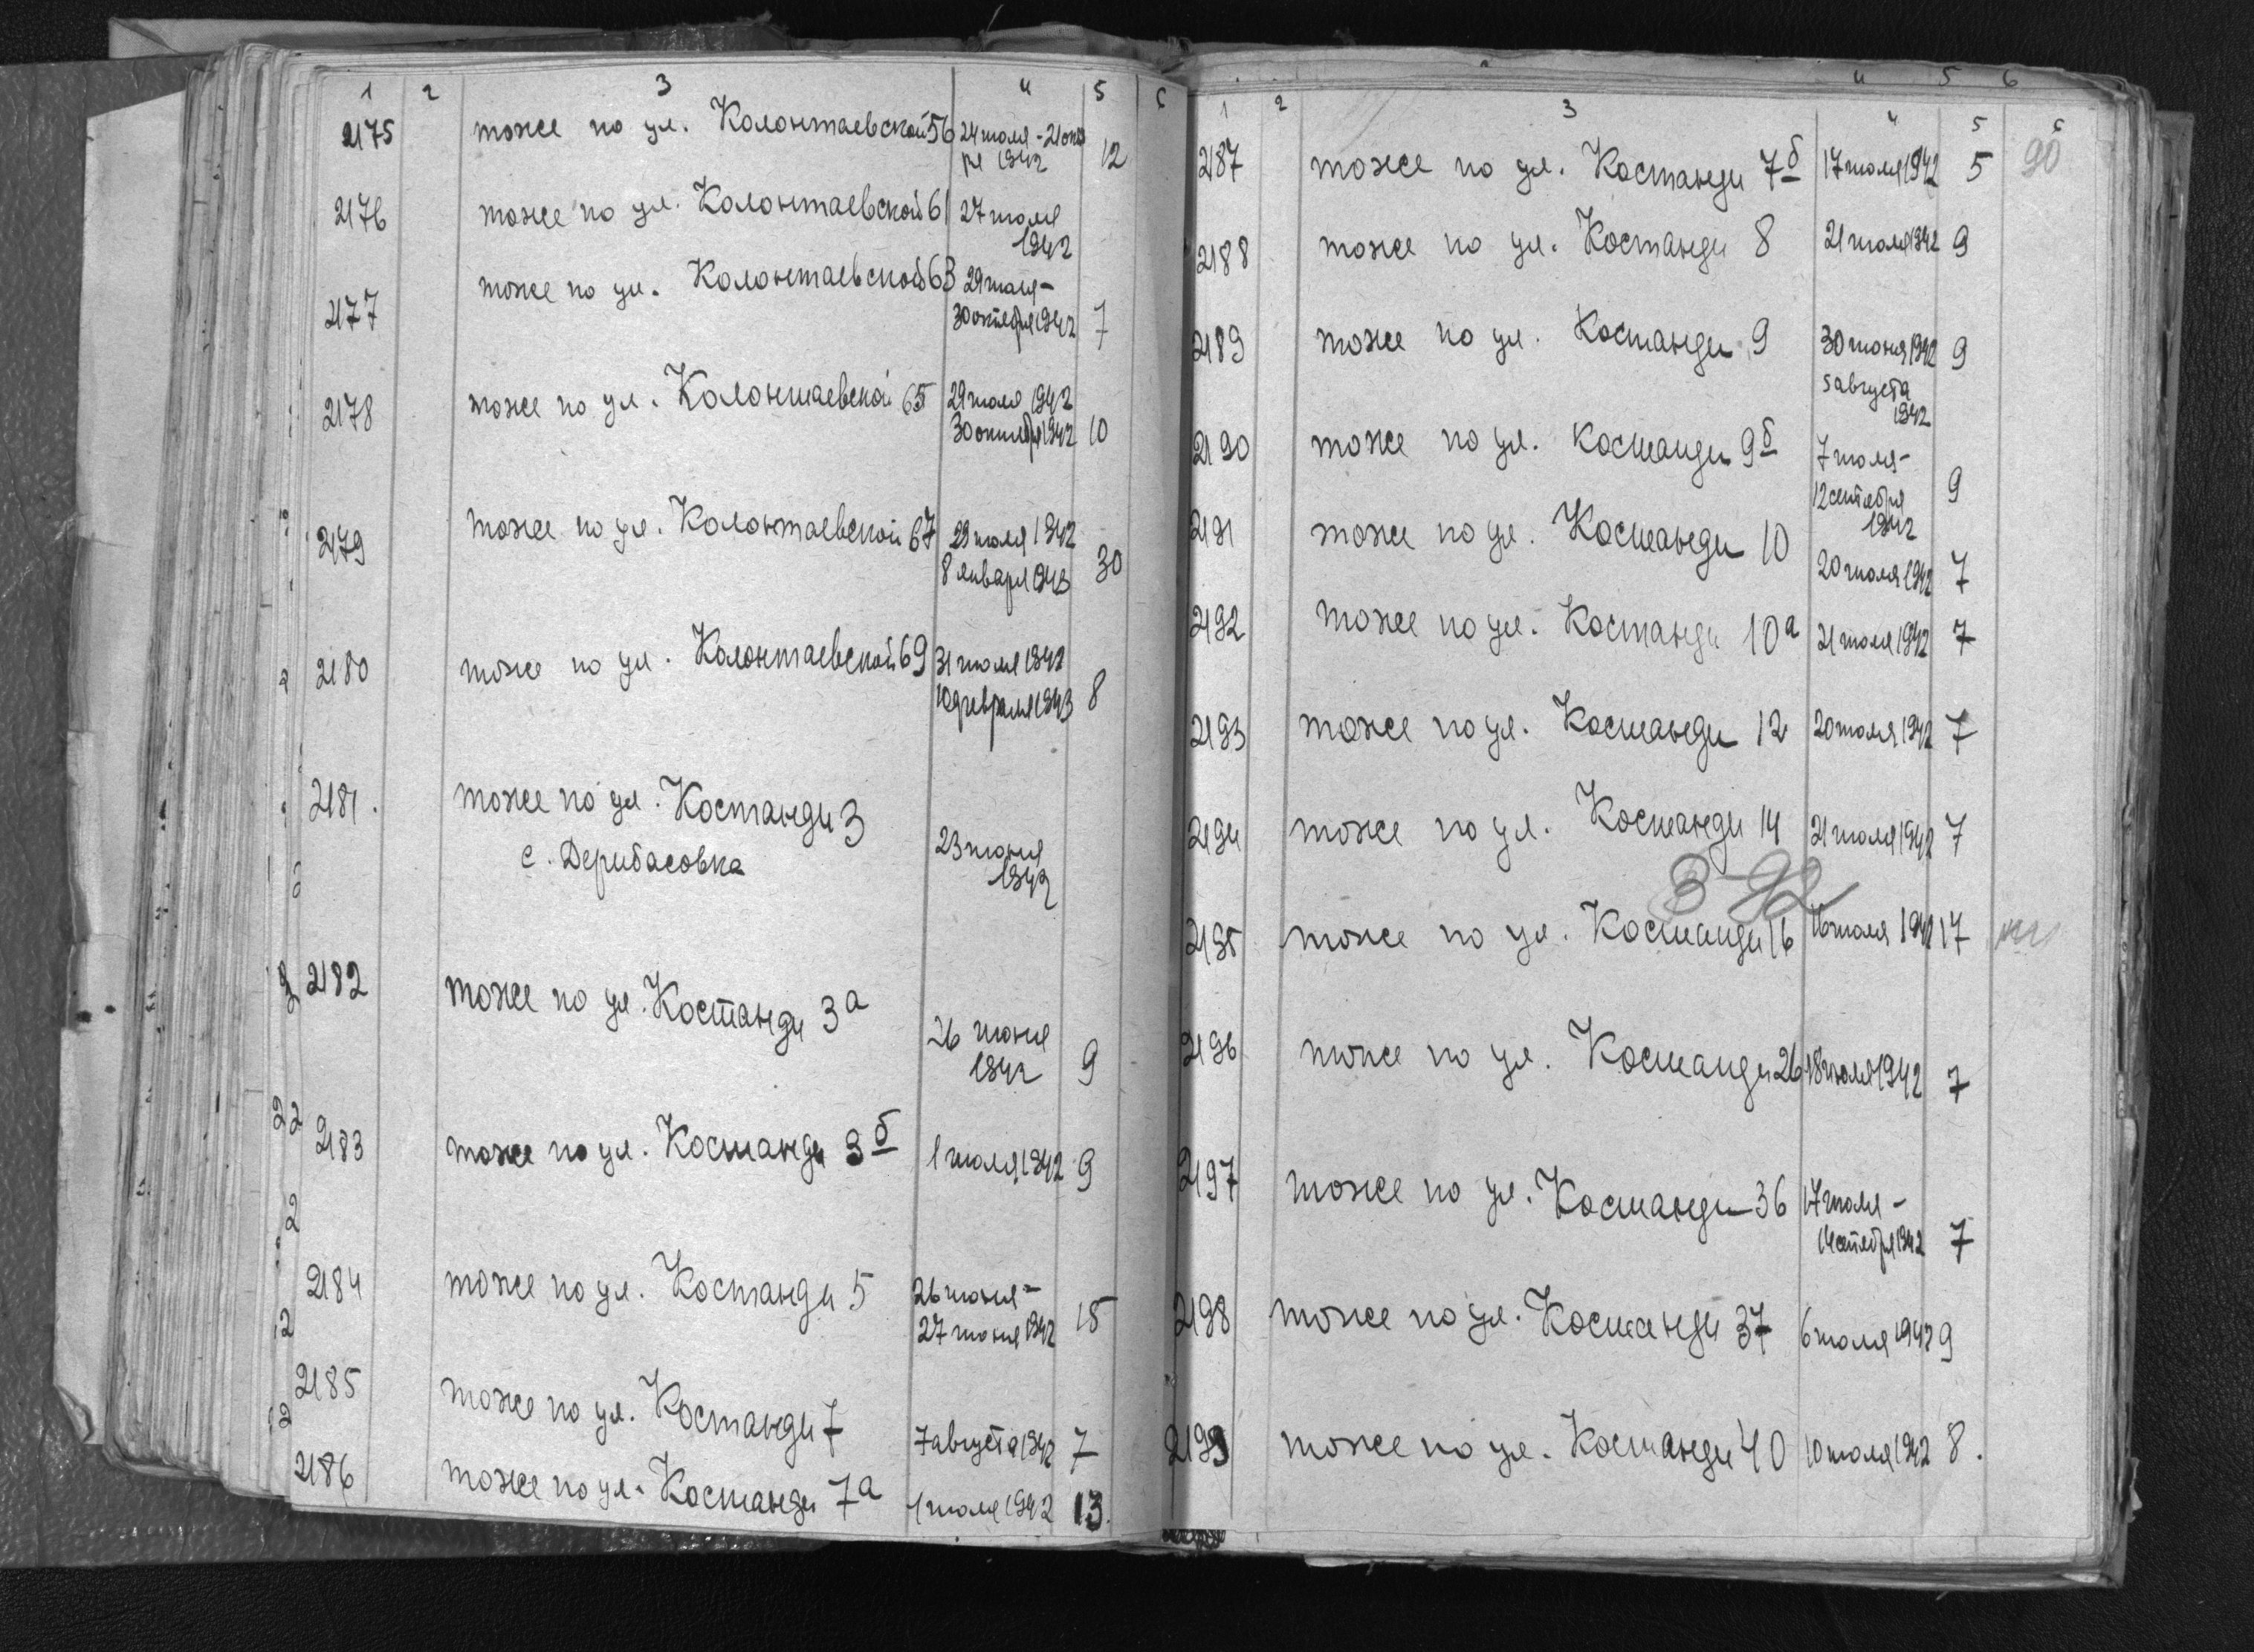 1 2 3 4 5 6
2175 тоже по ул. Колонтаевской 56 24 июля - 21 октя
ря 1942 12
2176 тоже по ул. Колонтаевской 61 27 июля
1942
2177 тоже по ул. Колонтаевской 63 29 июля -
30 октября 1942 7
2178 тоже по ул. Колонтаевской 65 29 июля 1942
30 октября 1942 10
2179 тоже по ул. Колонтаевской 67 29 июля 1942
8 января 1943 30
2180 тоже по ул. Колонтаевской 69 31 июля 1942
10 февраля 1943 8
2181. тоже по ул. Костанди 3
с. Дерибасовка 23 июня
1942
2182 тоже по ул. Костанди 3а
26 июня
1942 9
2183 тоже по ул. Костанди 3б 1 июля 1942 9
2184 тоже по ул. Костанди 5 26 июня -
27 июня 1942 15
2185 тоже по ул. Костанди 7 7 августа 1942 7
2186 тоже по ул. Костанди 7а 1 июля 1942 13.
4 5 6
1 2 3 4 5 6
2187 тоже по ул. Костанди 7б 17 июля 1942 5 90
2188 тоже по ул. Костанди 8 21 июля 1942 9
2189 тоже по ул. Костанди 9 30 июня 1942 9
5 августа
1942
2190 тоже по ул. Костанди 9б 7 июля -
12 сентября 9
1942
2191 тоже по ул. Костанди 10 20 июля 1942 7
2192 тоже по ул. Костанди 10а 21 июля 1942 7
2193 тоже по ул. Костанди 12 20 июля 1942 7
2194 тоже по ул. Костанди 14 21 июля 1942 7
2195 тоже по ул. Костанди 16 16 июля 1942 17
2196 тоже по ул. Костанди 26 18 июля 1942 7
2197 тоже по ул. Костанди 36 17 июля -
14 сентября 1942 7
2198 тоже по ул. Костанди 37 6 июля 1942 9
2199 тоже по ул. Костанди 40 10 июля 1942 8.